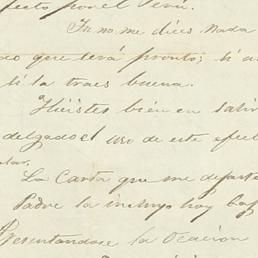 efecto por el Perú.
Tu no me dices nada
do que será pronto; si a
si la traes buena.
Hicistes bién en
delgado el uso de este efec
tar.
La Carta que me
Padre la incluyo hoy baj
Presentandose la Ocacion